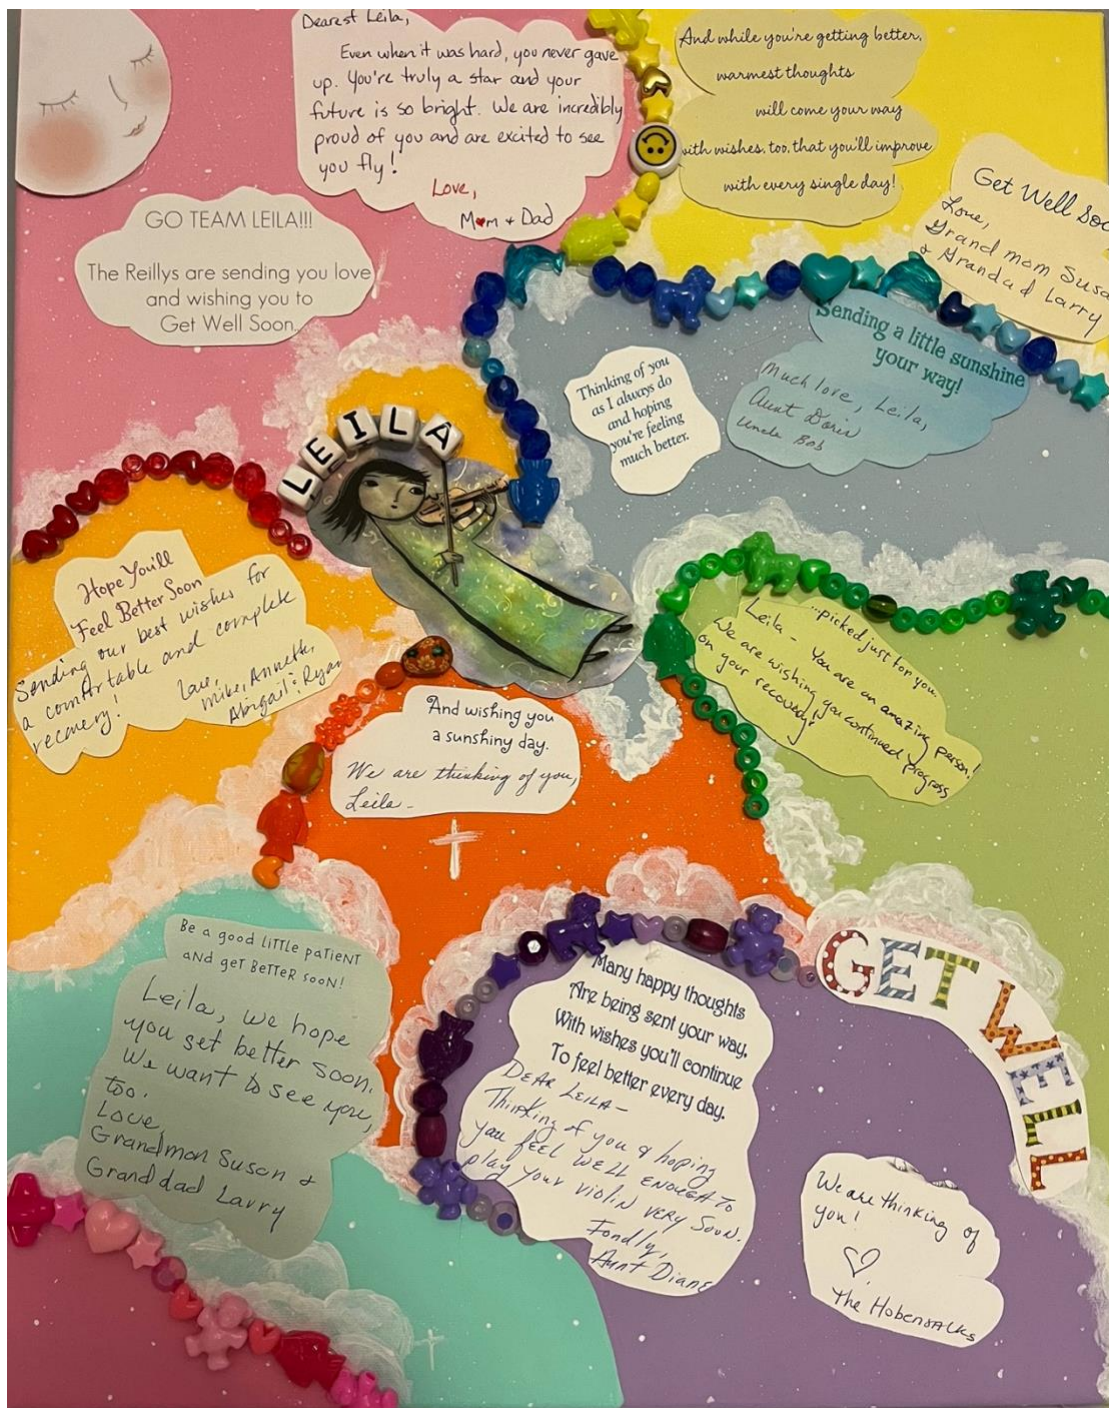 Dearest Leila,
Even when it was hard, you never gave
up. You're truly a star and your
future is so bright. We are incredibly
proud of you and are excited to see
you fly!
Love,
Mom + Dad
And while you're getting better,
warmest thoughts
will come your way
with wishes, too, that you'll improve
with every single day!
Get Well Soo
Love,
Grand mom Susa
& Grandad Larry
GO TEAM LEILA!!!
The Reillys are sending you love
and wishing you to
Get Well Soon.
Sending a little sunshine
your way!
Much love, Leila,
Aunt Doris
Uncle Bob
Thinking of you
as I always do
and hoping
you're feeling
much better.
LEILA
Hope You'll
Feel Better Soon
Sending our best wishes for
a comfortable and complete
recovery!
Love,
Mike, Annette,
Abigail & Ryan
...picked just for you.
Leila - You are an amazing person!
We are wishing you continued progress
on your recovery!
And wishing you
a sunshiny day.
We are thinking of you,
Leila-
Be a good little patient
and get better soon!
Leila, we hope
you get better soon.
We want to see you,
too.
Love,
Grandmom Susan &
Granddad Larry
Many happy thoughts
Are being sent your way,
With wishes you'll continue
To feel better every day.
DEAR LEILA-
Thinking of you & hoping
you feel WELL ENOUGH TO
play your violin very soon.
Fondly,
Aunt Diane
GET WELL
We are thinking of
you!
The Hobensacks